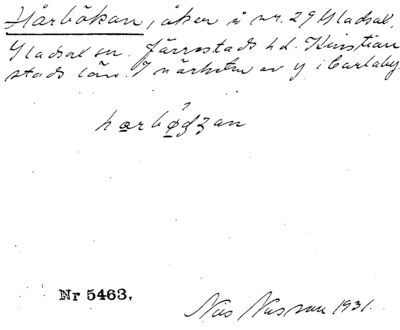 Hårbökan, åker å nr. 29 Gladsal,
Gladsax sn. Järrestads hd. Kristian
stads län. I närheten av y i Carlaby.
harbǫdʒan
Nr 5463.
Nils Nilsson 1931.